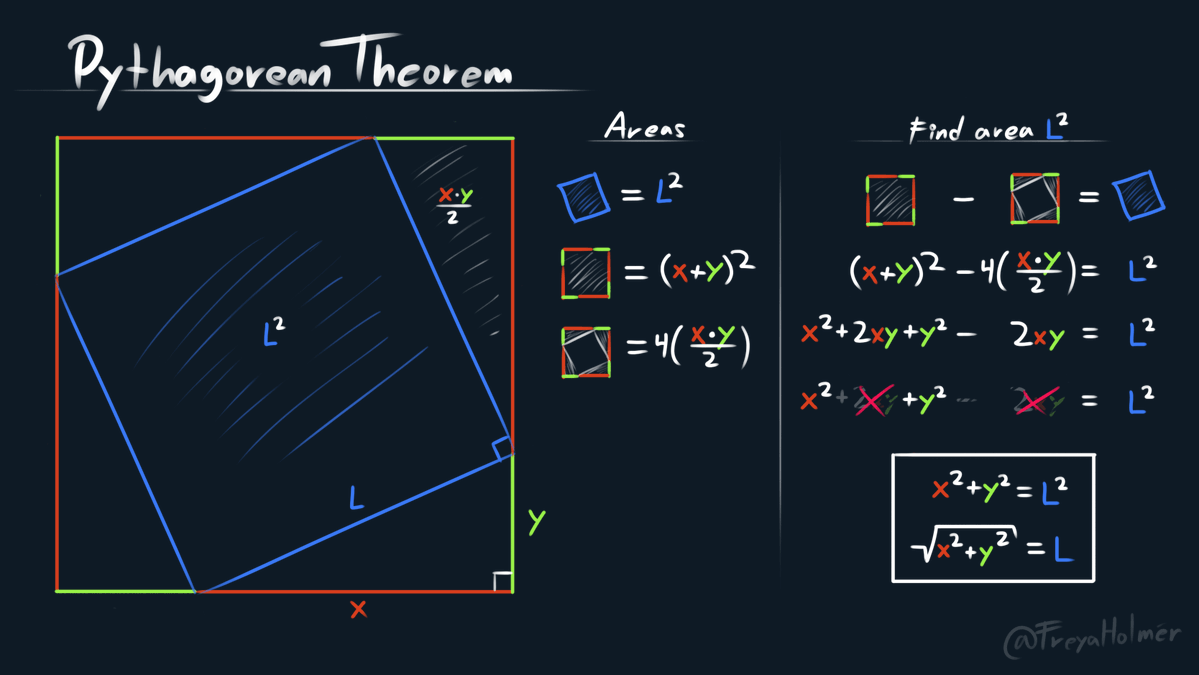 Pythagorean Theorem
x·y/2
L²
L
y
x
Areas
= L²
= (x+y)²
= 4(x·y/2)
Find area L²
− =
(x+y)² − 4(x·y/2) = L²
x² + 2xy + y² − 2xy = L²
x² + 2xy + y² − 2xy = L²
x² + y² = L²
√(x² + y²) = L
@FreyaHolmér